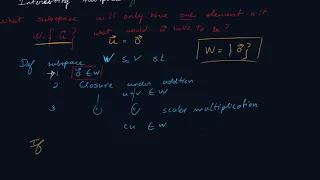 Interesting subspace
what subspace will only have one element in it
W = { u⃗ } what would u⃗ have to be?
u⃗ = 0⃗
W = { 0⃗ }
Def subspace W ≤ V s.t.
1 0⃗ ∈ W
2 Closure under addition
u+v ∈ W
3 " " scalar multiplication
cu ∈ W
If